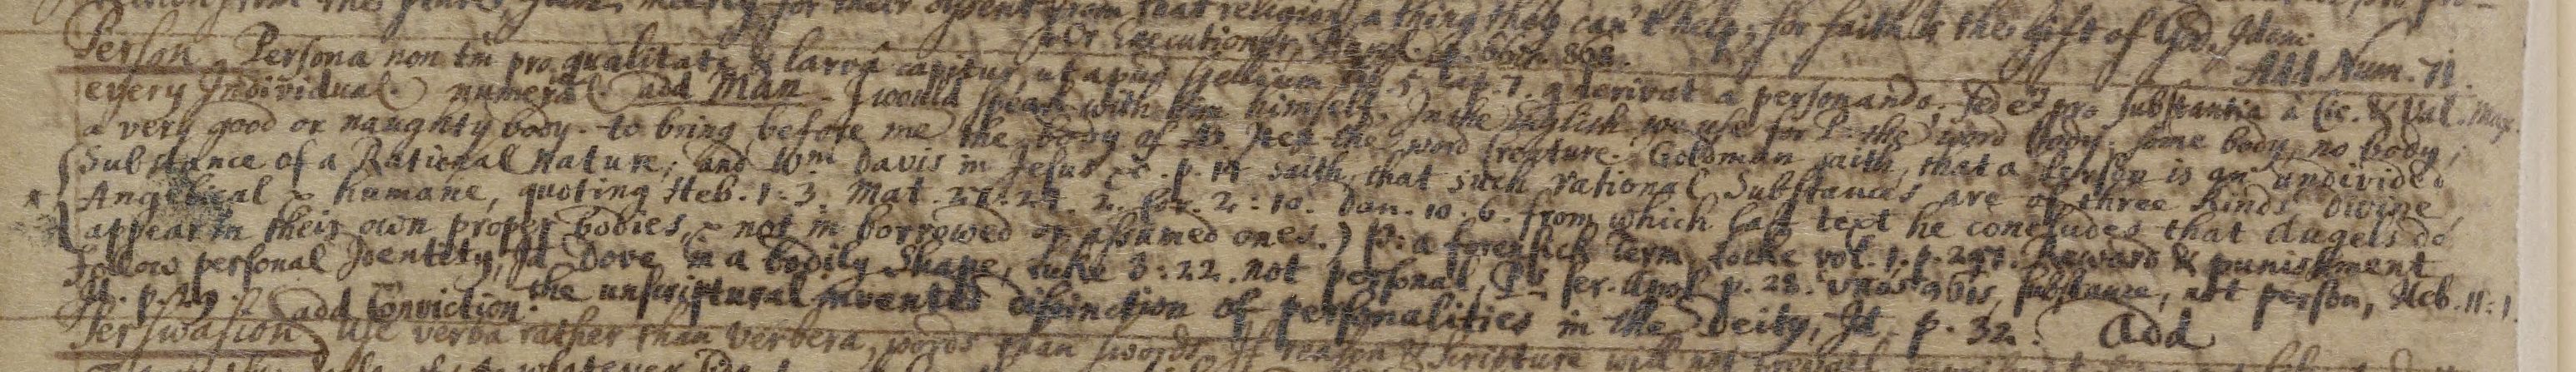 for their dissent from that religion, a thing they can't help; for faith is the gift of God. Idem.
or Executioner, p. 667. 808. Add Num. 71.
Person. Persona non tm pro qualitate & larvâ capitur, ut apud Gellium lib. 5. cap. 7. q derivat a personando; sed etj pro substantia à Cic. & Val. Max.
every Individual numeral add Man I would speak with him himself. In the English we use for P. the word body. some body, no body,
a very good or naughty body. to bring before me the body of AB. Item the word Creature. Goldman saith, that a Person is an undivided
Substance of a Rational Nature; and Wm Davis in Jesus &c. p. 14 saith, that such rational Substances are of three kinds Divine,
Angelical & humane, quoting Heb. 1. 3. Mat. 27. 24. 2. Cor. 2: 10. Dan. 10. 6. from which last text he concludes that Angels do
appear in their own proper bodies, & not in borrowed or assumed ones.) P: a forensick term Locke vol. 1. p. 297. Reward & punishment
follow personal Identity, Id Dove in a bodily Shape, Luke 3: 22. not personal, p. 28. substance, not person, Heb. 11: 1.
Id. p. 29. the unscriptural invented distinction of personalities in the Deity, Id. p. 32. Add
add Conviction.
Perswasion Use verba rather than verbera, words than swords. If reason & Scripture will not prevail